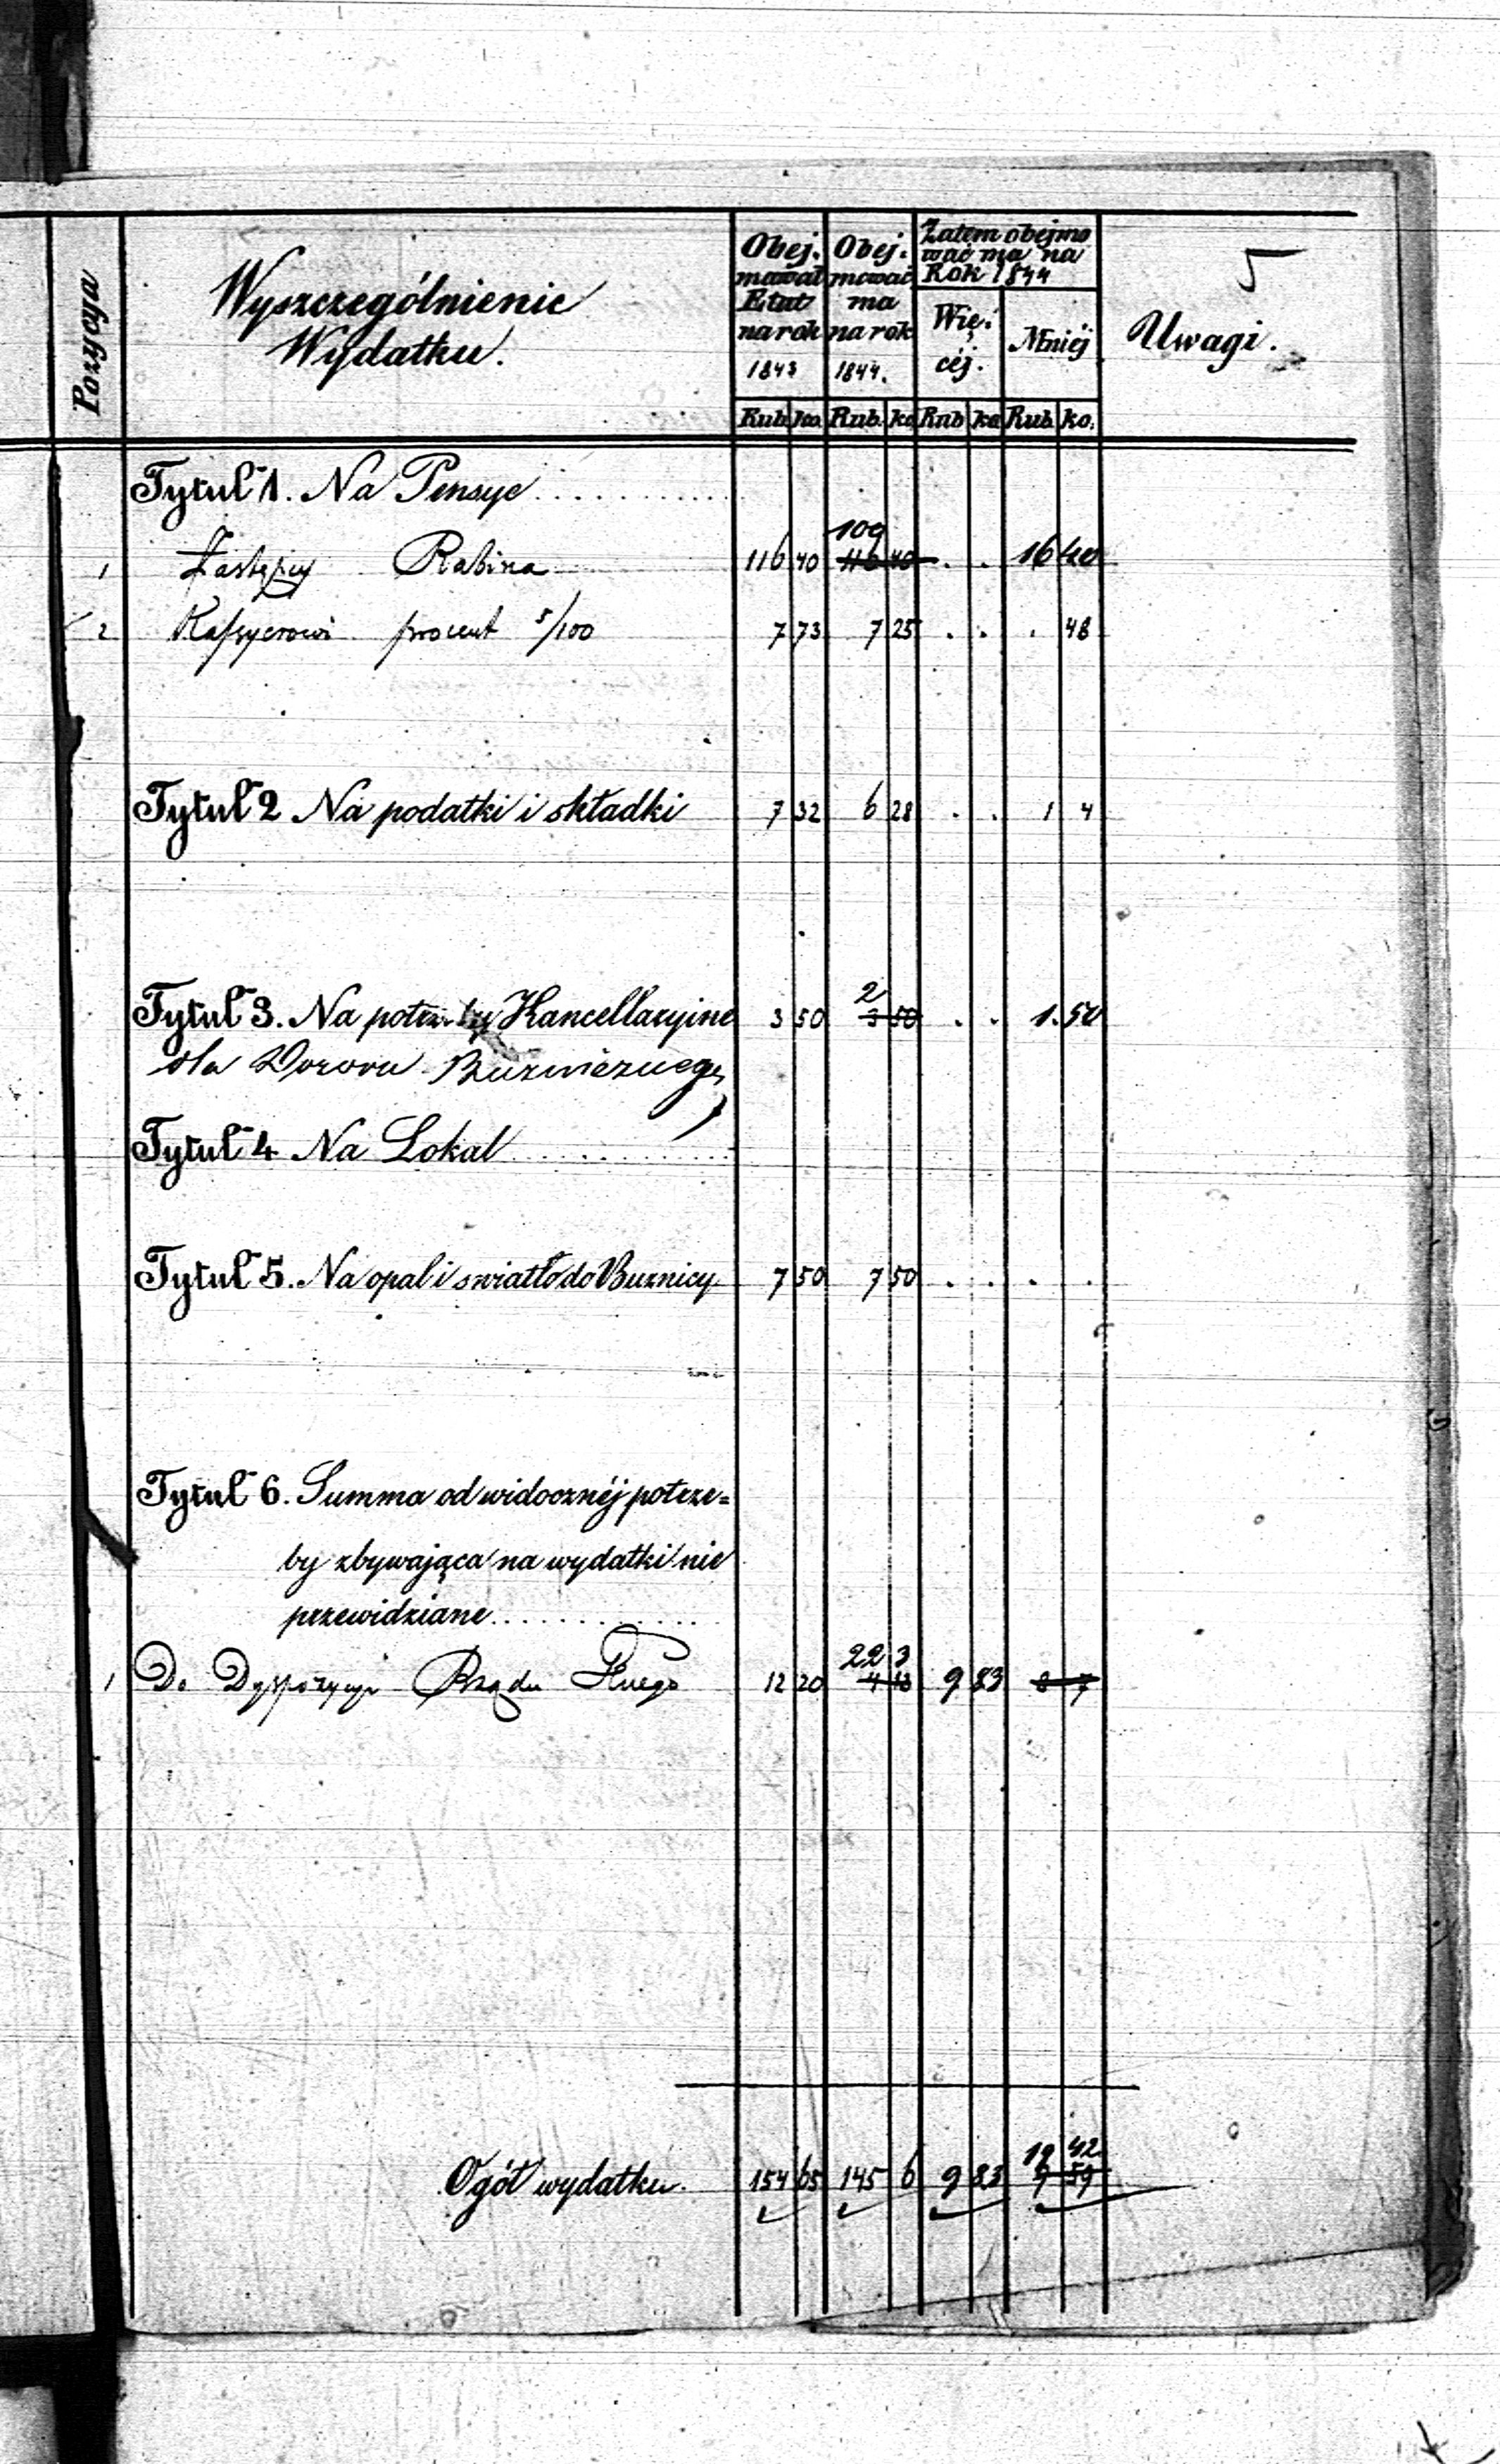 5
Pozycya
Wyszczególnienie
Wydatku.
Obej.
mował
Etat
na rok
1843
Obej.
mować
ma
na rok
1844.
Zatem obejmo
wać ma na
Rok 1844
Wię.
céj.
Mniéj
Uwagi.
Rub. ko. Rub. ko Rub ko Rub. ko.
Tytuł 1. Na Pensye
100
1 Zastępcy Rabina 116 40 116 40 . . 16 40
2 Kassyerowi procent 5/100 7 73 7 25 . . . 48
Tytuł 2 Na podatki i składki 7 32 6 28 . . 1 4
2
Tytuł 3. Na potrzeby Kancellaryine 3 50 3 50 . . 1. 50
dla Dozoru Bużniczego
Tytuł 4 Na Lokal
Tytuł 5. Na opał i swiatło do Buznicy 7 50 7 50 . . . .
Tytuł 6. Summa od widocznéj potrze=
by zbywająca na wydatki nie
przewidziane
22 3
1 Do Dyspozycyi Rządu 12 20 4 13 9 83 8 7
19 42
Ogół wydatku. 154 65 145 6 9 83 9 59